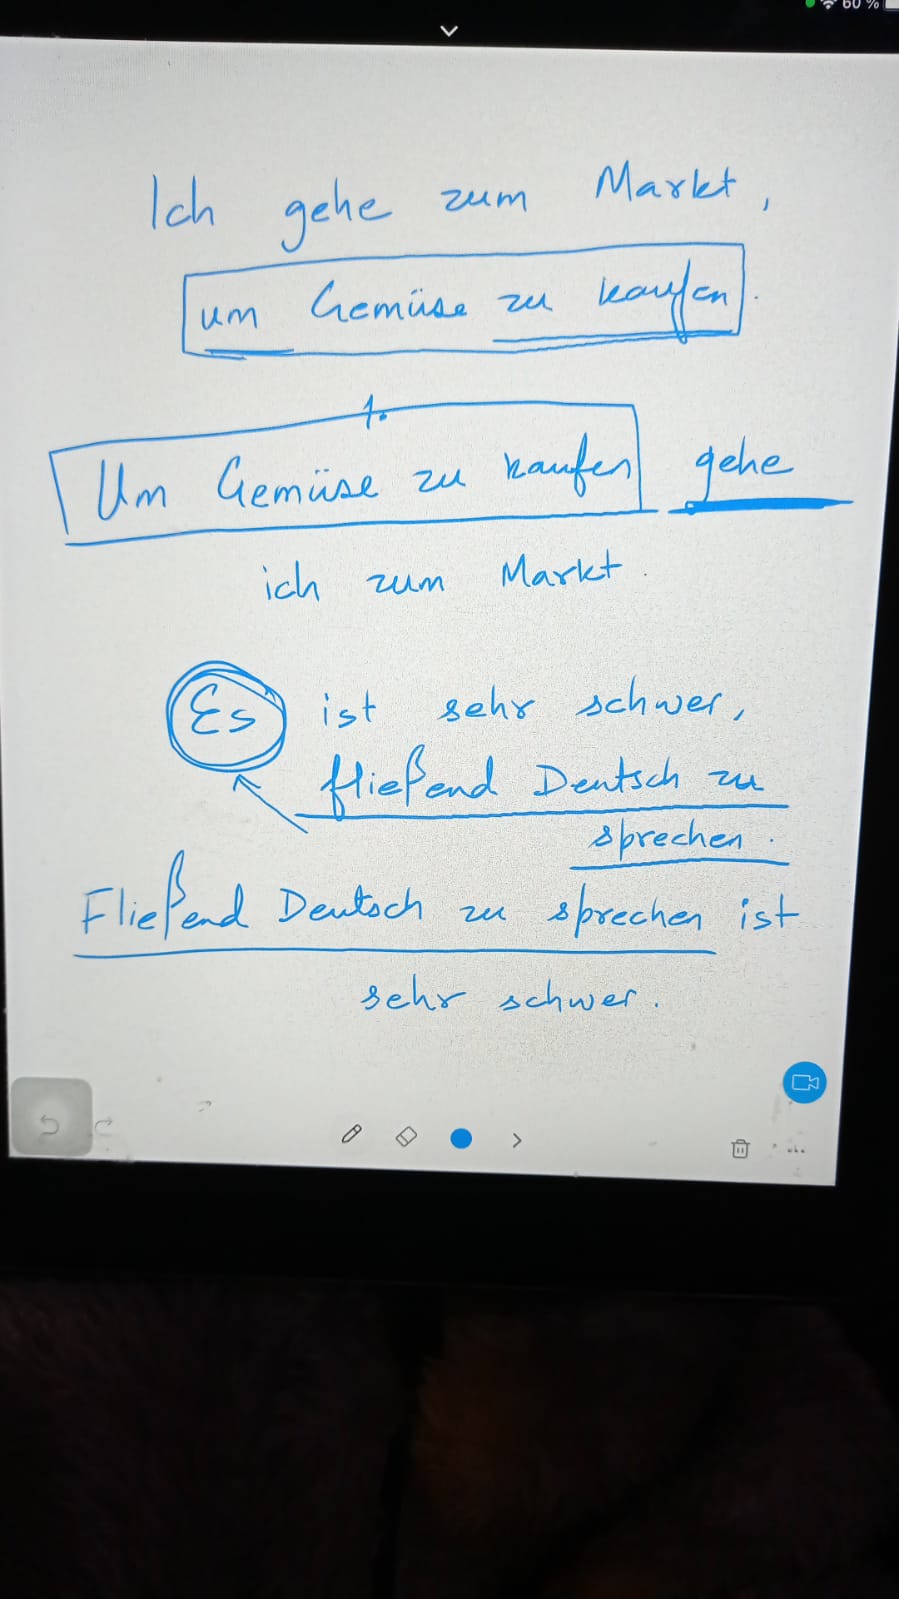 60 %
Ich gehe zum Markt,
um Gemüse zu kaufen.
1.
Um Gemüse zu kaufen gehe
ich zum Markt.
Es ist sehr schwer,
fließend Deutsch zu
sprechen.
Fließend Deutsch zu sprechen ist
sehr schwer.